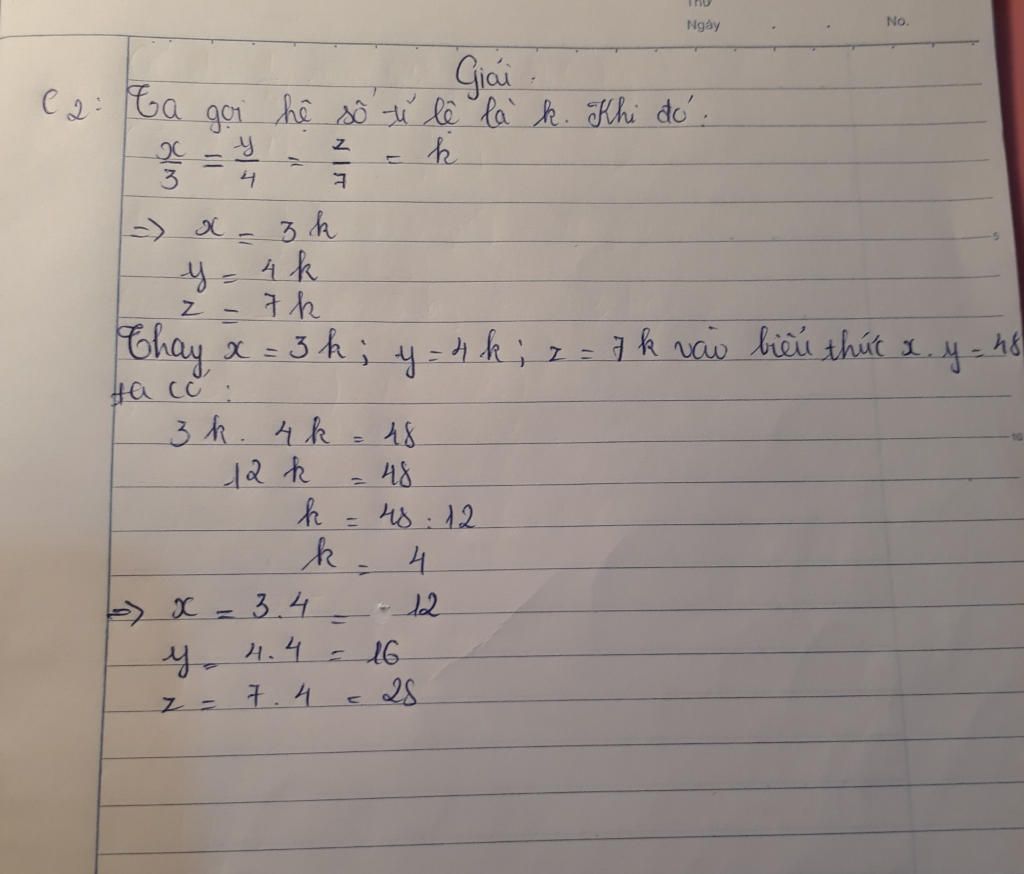 Thứ
Ngày . . No.
Giải.
C2: Ta gọi hệ số tỉ lệ là k. Khi đó:
x/3 = y/4 = z/7 = k
=> x = 3k
5
y = 4k
z = 7k
Thay x = 3k; y = 4k; z = 7k vào biểu thức x.y = 48
ta có:
3k. 4k = 48
10
12k = 48
k = 48:12
k = 4
=> x = 3.4 = 12
y = 4.4 = 16
z = 7.4 = 28